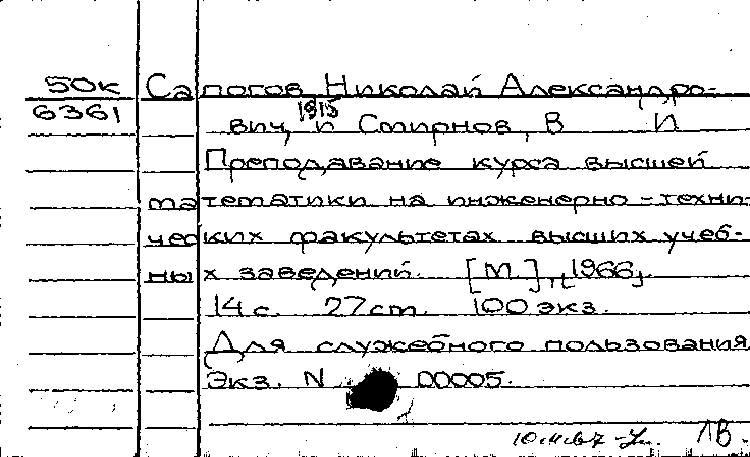 50к Сапогов, Николай Александро-
6361 1915
вич, и Смирнов, В И
Преподавание курса высшей
математики на инженерно-техни-
ческих факультетах высших учеб-
ных заведений. [М.], 1966,
14 с. 27 cm. 100 экз.
Для служебного пользования
Экз. N 00005.
18.